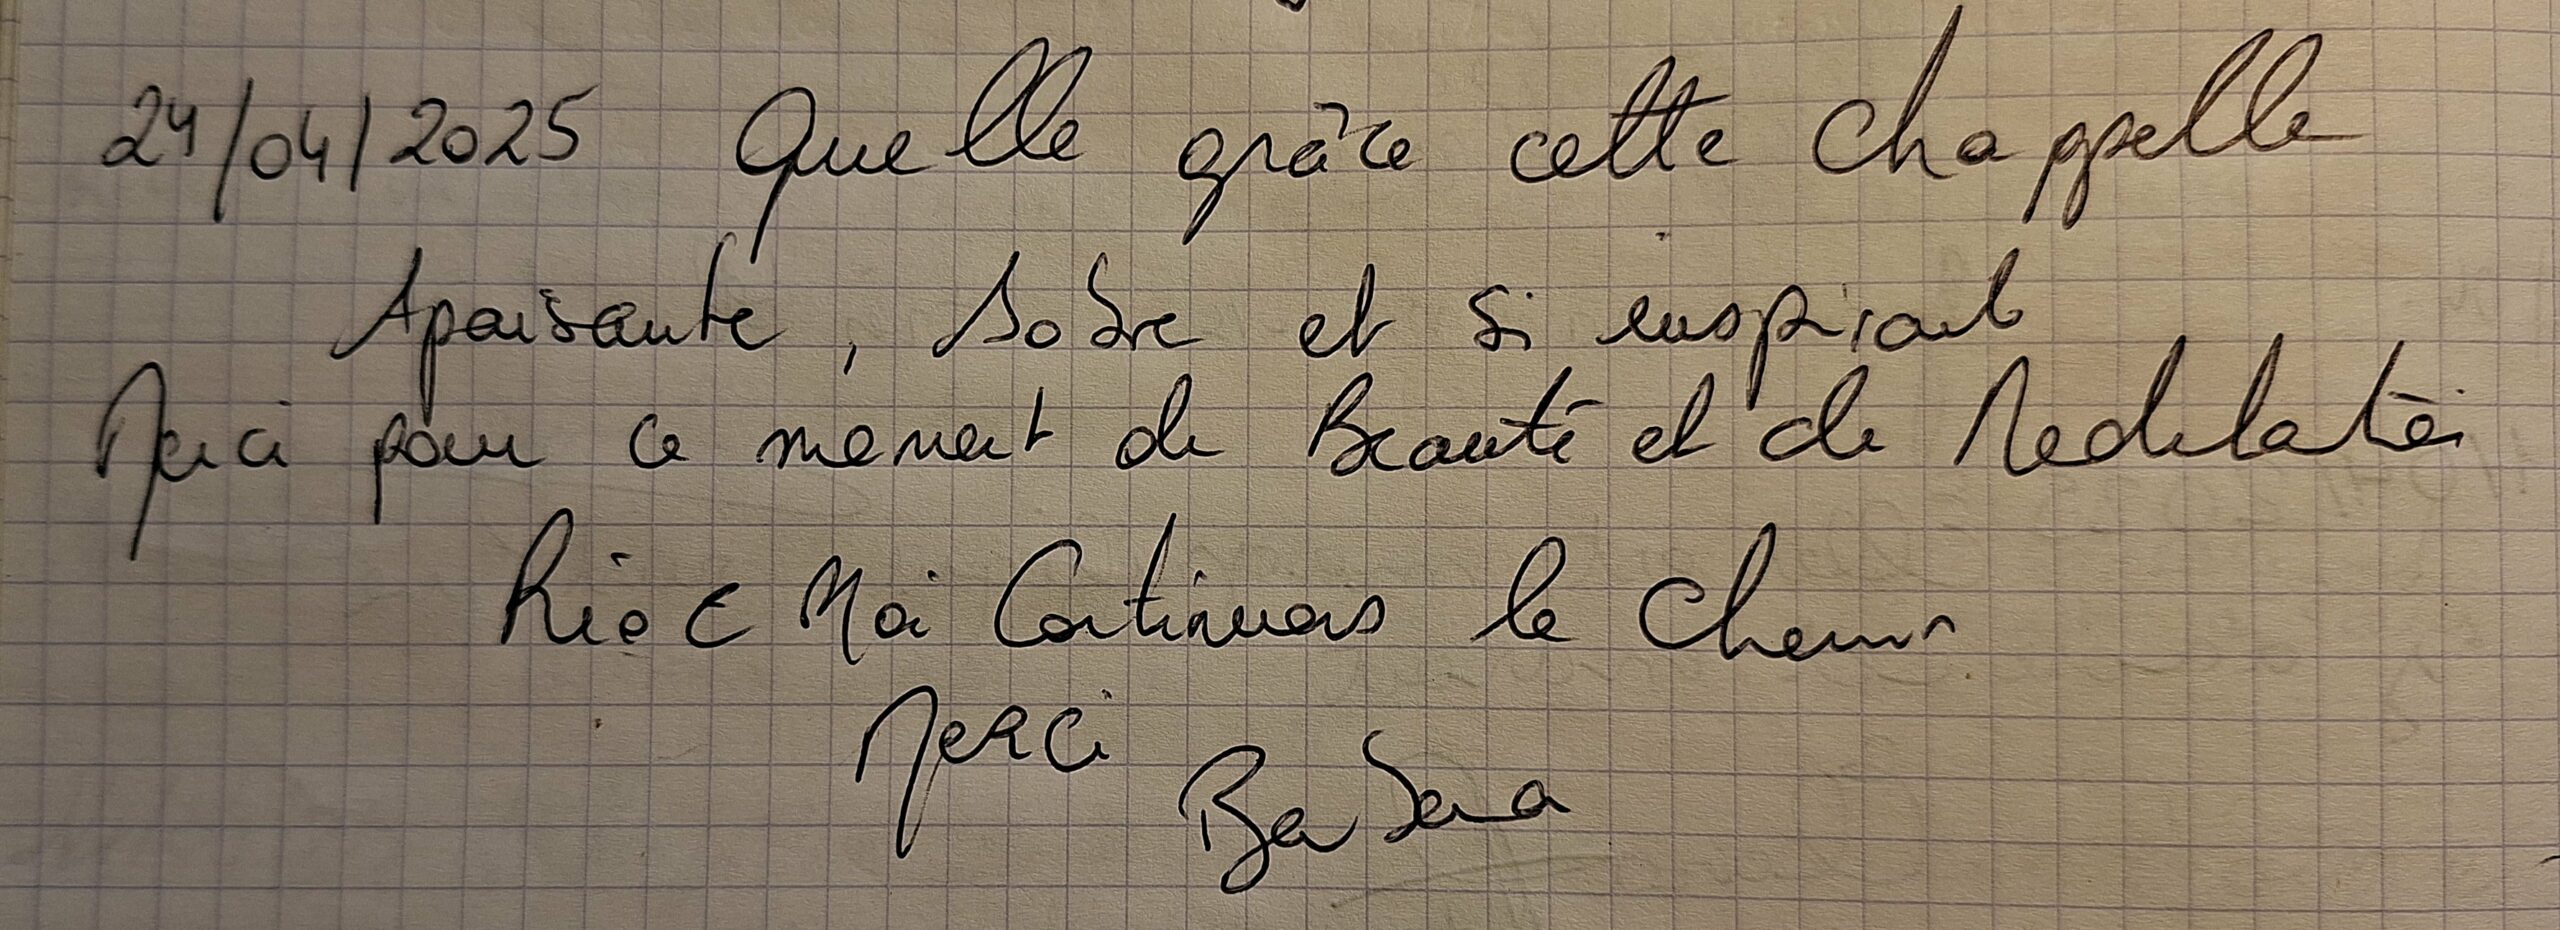 24/04/2025 Quelle grâce cette Chappelle
Apaisante, Sobre et si inspirant
Merci pour ce moment de Beauté et de Meditation
et Moi Continuons le Chemin
Merci
Barbara